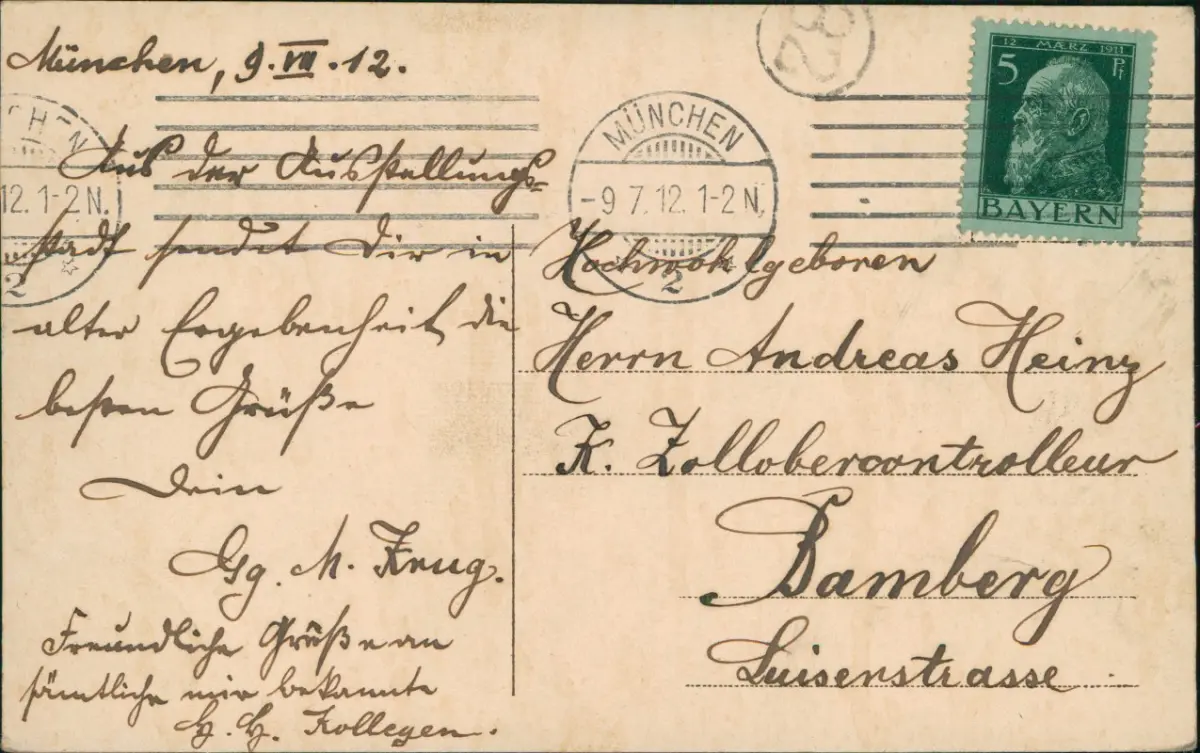 München, 9. VII. 12.
Aus der Ausstellungs=
stadt sendet Dir in
alter Ergebenheit die
besten Grüße
Dein
Gg. M. Krug.
Freundliche Grüße an
sämtliche mir bekannte
H. H. Kollegen.
28
12 MÆRZ 1911
5 Pf
BAYERN
CHEN
12. 1-2 N.
2
MÜNCHEN
-9 7. 12. 1-2 N.
2
Hochwohlgeboren
Herrn Andreas Heinz
K. Zollobercontrolleur
Bamberg
Luisenstrasse.